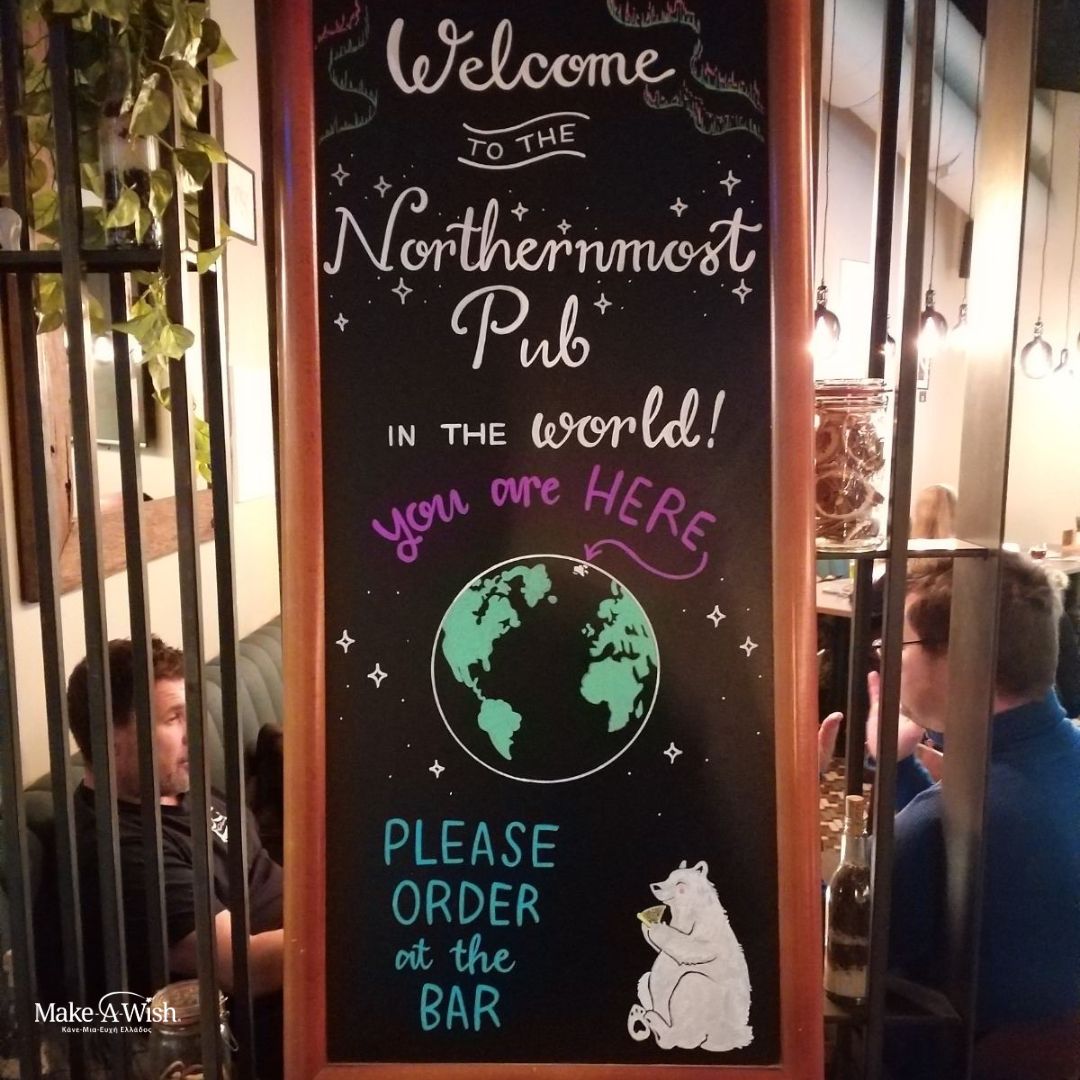 Welcome
TO THE
Northernmost
Pub
IN THE world!
you are HERE
PLEASE
ORDER
at the
BAR
Make-A-Wish.
Κάνε-Μια-Ευχή Ελλάδος